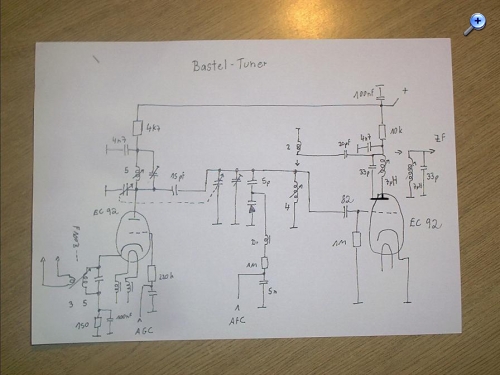 Bastel-Tuner
100nF
+
4k7
4n7
10k
4n7
ZF
2
30pF
33p
33p
5
15pF
5p
7µH
7µH
4
82
EC 92
EC 92
Dr
1M
1M
220k
3 5
150
100nF
5n
AGC
AFC